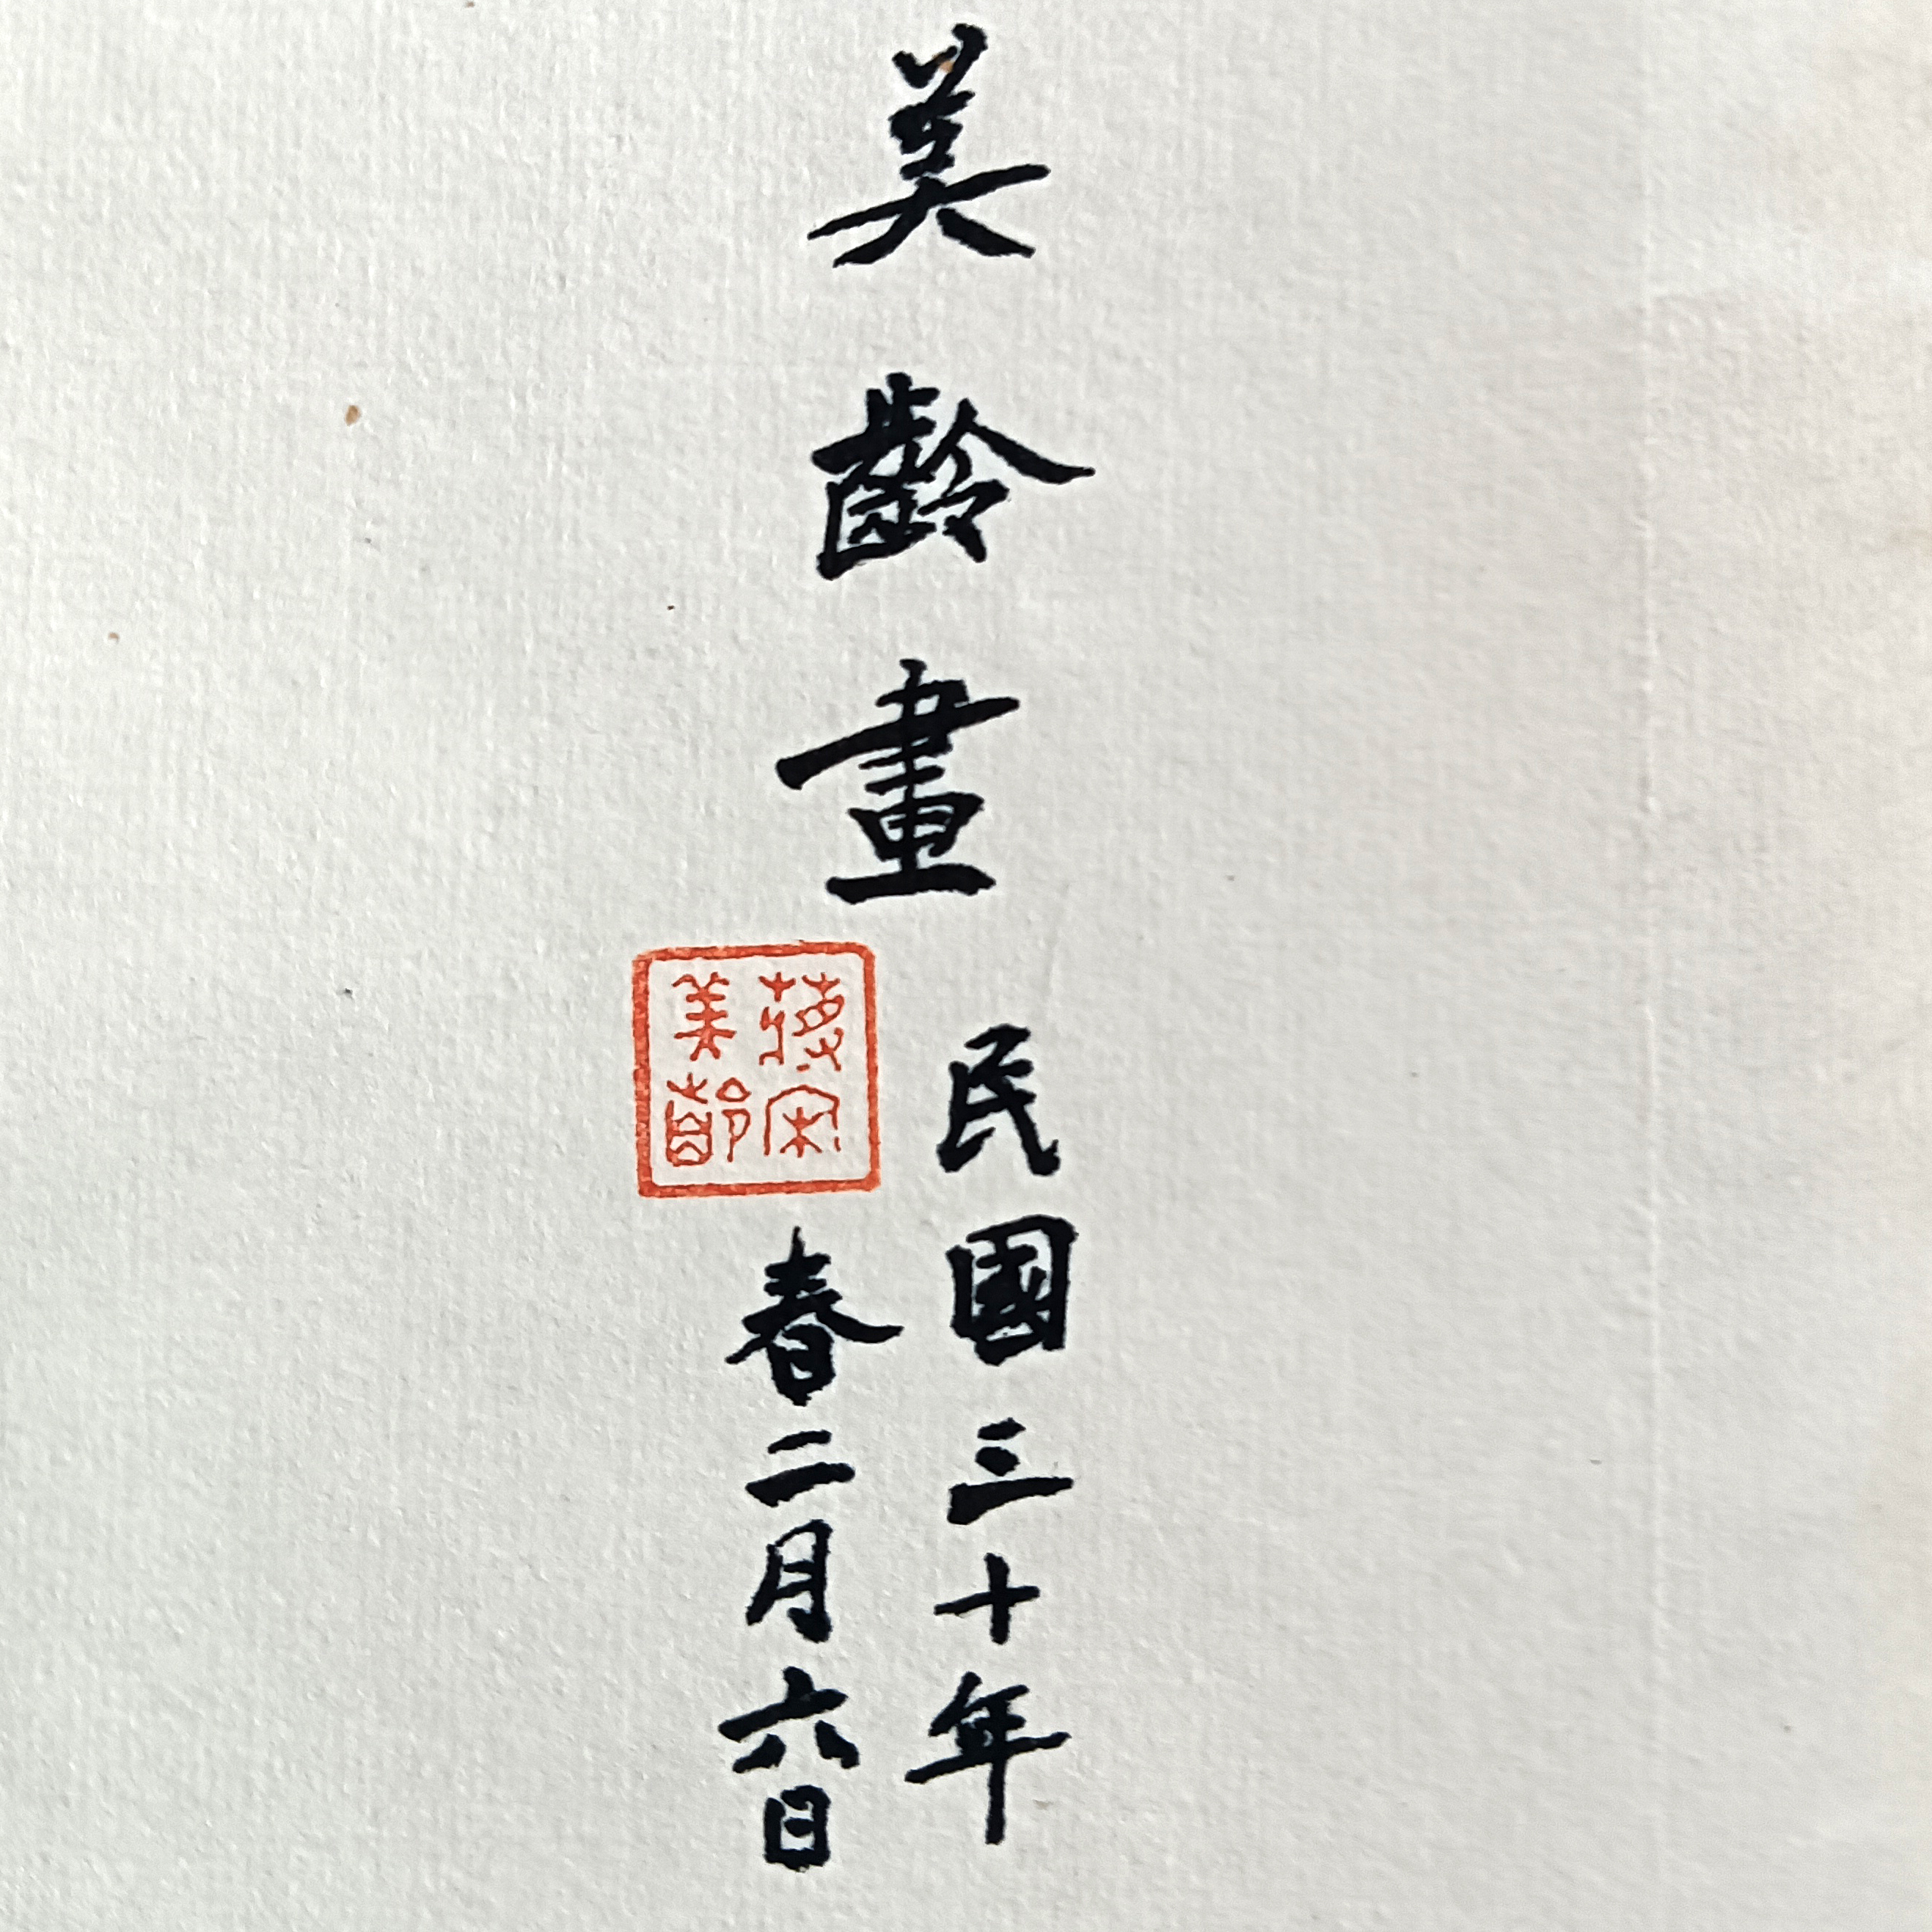 美齡畫
民國三十年
春二月六日
蔣宋
美齡